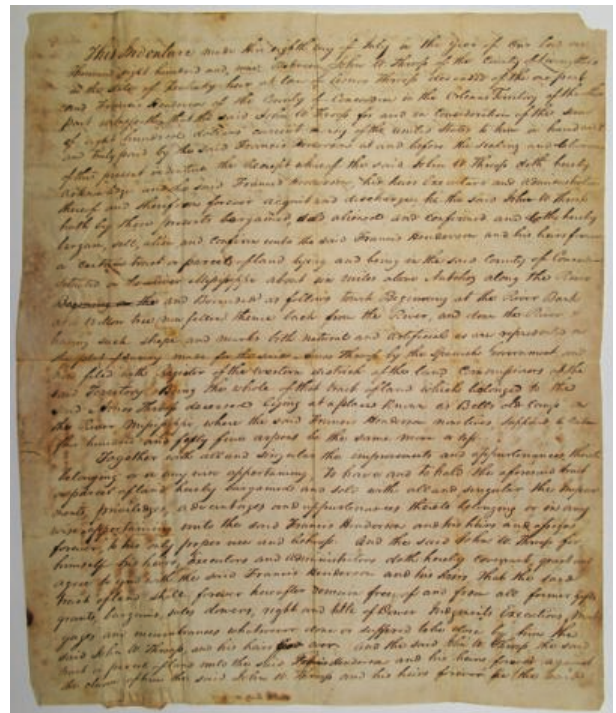 This Indenture made this eighth day of July in the Year of Our Lord one
Thousand eight hundred and nine Between John W. Throop of the County of
in the State of Kentucky heir at law of deceased of the one part
and Francis Henderson of the County of Concordia in the Orleans Territory of the other
part witnesseth, that the said John W Throop for and in Consideration of the sum
of eight hundred dollars current money of the United States to him in hand well
and truly paid by the said Francis Henderson at and before the sealing and delivery
of this present indenture the Receipt whereof the said John W Throop doth hereby
acknowledge and the said Francis Henderson his heirs Executors and administrators
thereof and therefrom forever acquit and discharge, he the said John W Throop
hath by these presents bargained, sold aliened and confirmed and doth hereby
bargain, sell, alien and confirm unto the said Francis Henderson and his heirs forever
a certain tract or parcel of land lying and being in the said County of Concordia
situated on the River Mississippi about six miles above along the River
and Bounded as follows towit Beginning at the River Bank
at a tree, now fallen thence back from the River, and down the River
having such shape and marks both natural and artificial as are represented in
the plot of Survey made for the said Throop by the Spanish Government and
now filed with Register of the western district of the land Commissioners of the
said Territory. Being the whole of that tract of land which belonged to the
said Throop deceased lying at a place known as Bells old Camp on
the River Mississippi, where the said Francis Henderson now lives supposed to contain
hundred and fifty four arpens be the same more or less
Together with all and singular the improvements and appurtenances thereto
belonging or in any wise appertaining, To have and to hold the aforesaid tract
or parcel of land hereby bargained and sold with all and singular the improve
ments, priviledges, advantages and appurtenances thereto belonging or in any
wise appertaining unto the said Francis Henderson and his heirs and assigns
forever, to his only proper use and behoof. And the said John W Throop for
himself his heirs, Executors and administrators doth hereby covenant, grant and
agree to and with the said Francis Henderson and his heirs, that the said
tract of land shall forever hereafter remain free of and from all former gifts
grants, bargains, sales dowers, right and title of Dower Judgments Executions, Mort
gages and incumbrances whatsoever done or suffered to be done by him the
said John W. Throop, and his heirs for ever. And the said John W Throop the said
tract or parcel of land unto the said Francis Henderson and his heirs forever against
the claim of him the said John W Throop and his heirs forever